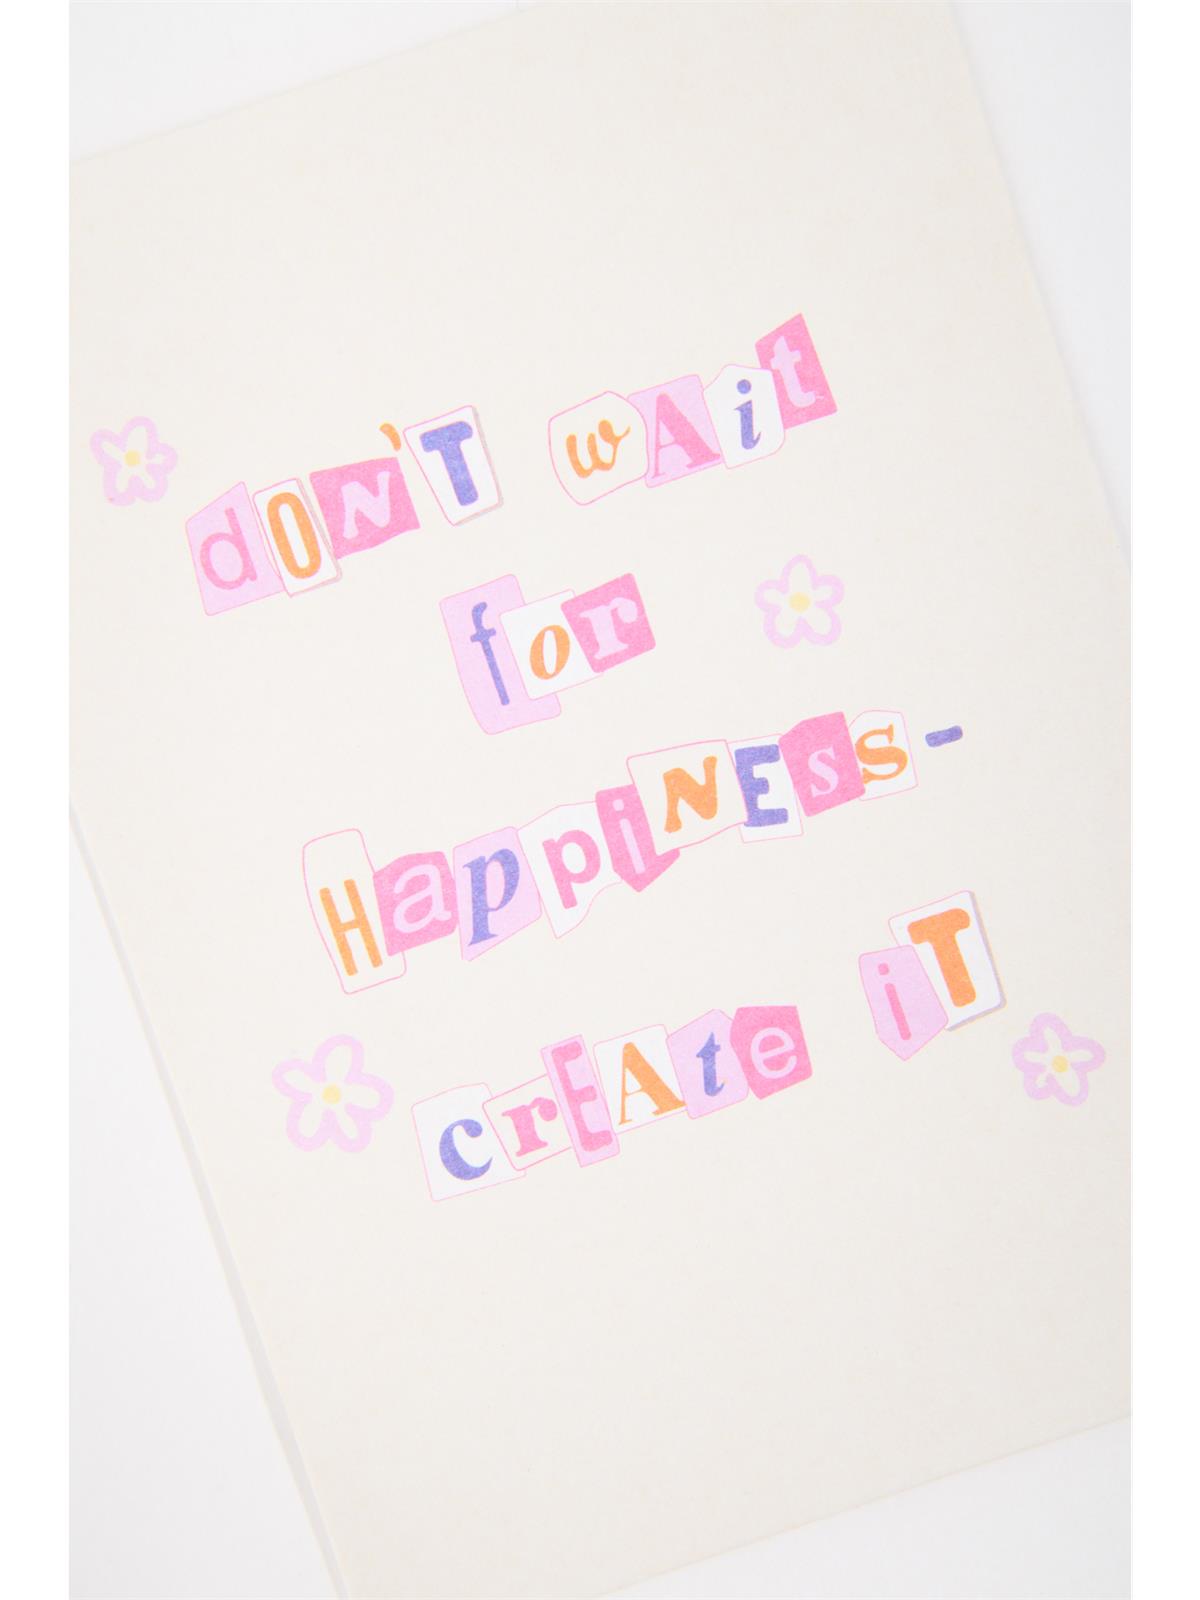 dON'T wAit
for
HappiNESS-
crEAte iT